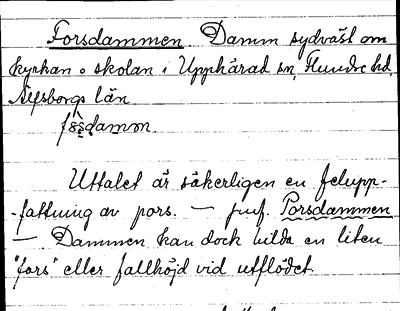 Forsdammen. Damm sydväst om
kyrkan o skolan i Upphärad sn, Flundre hd,
Älfsborgs län
damm.
Uttalet är säkerligen en felupp-
-fattning av pors. — jmf. Porsdammen
— Dammen kan dock bilda en liten
"fors" eller fallhöjd vid utflödet.